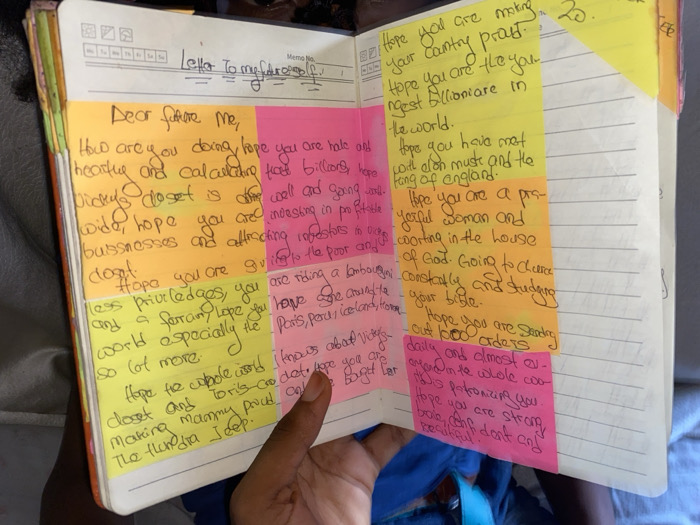 Memo No.
Letter To my future self!
Dear future Me,
How are you doing, hope you are hale and
hearty and calculating that billions, hope
vickys closet is well and going world
wide, hope you are investing in profitable
bussnesses and attracting investors in
closet.
Hope you are giving to the poor and
less priviledges, you are riding a lambourgini
and a ferrari, hope you have gone around the
world especially the Paris, peru, iceland,
so lot more.
Hope the whole world knows about vickys
closet and hope you are
making mammy proud. and bought her
The tundra Jeep.
20.
Hope you are making
your country proud.
Hope you are the you-
ngest billioniare in
the world.
Hope you have met
with elon musk and the
king of england.
Hope you are a pra-
yerful woman and
working in the house
of God. Going to church
constantly and studying
your bible.
Hope you are sending
out 1000 orders
daily and almost ev-
eryone in the whole wo-
rld is patronizing you.
Hope you are strong,
brave, confident and
beautiful.